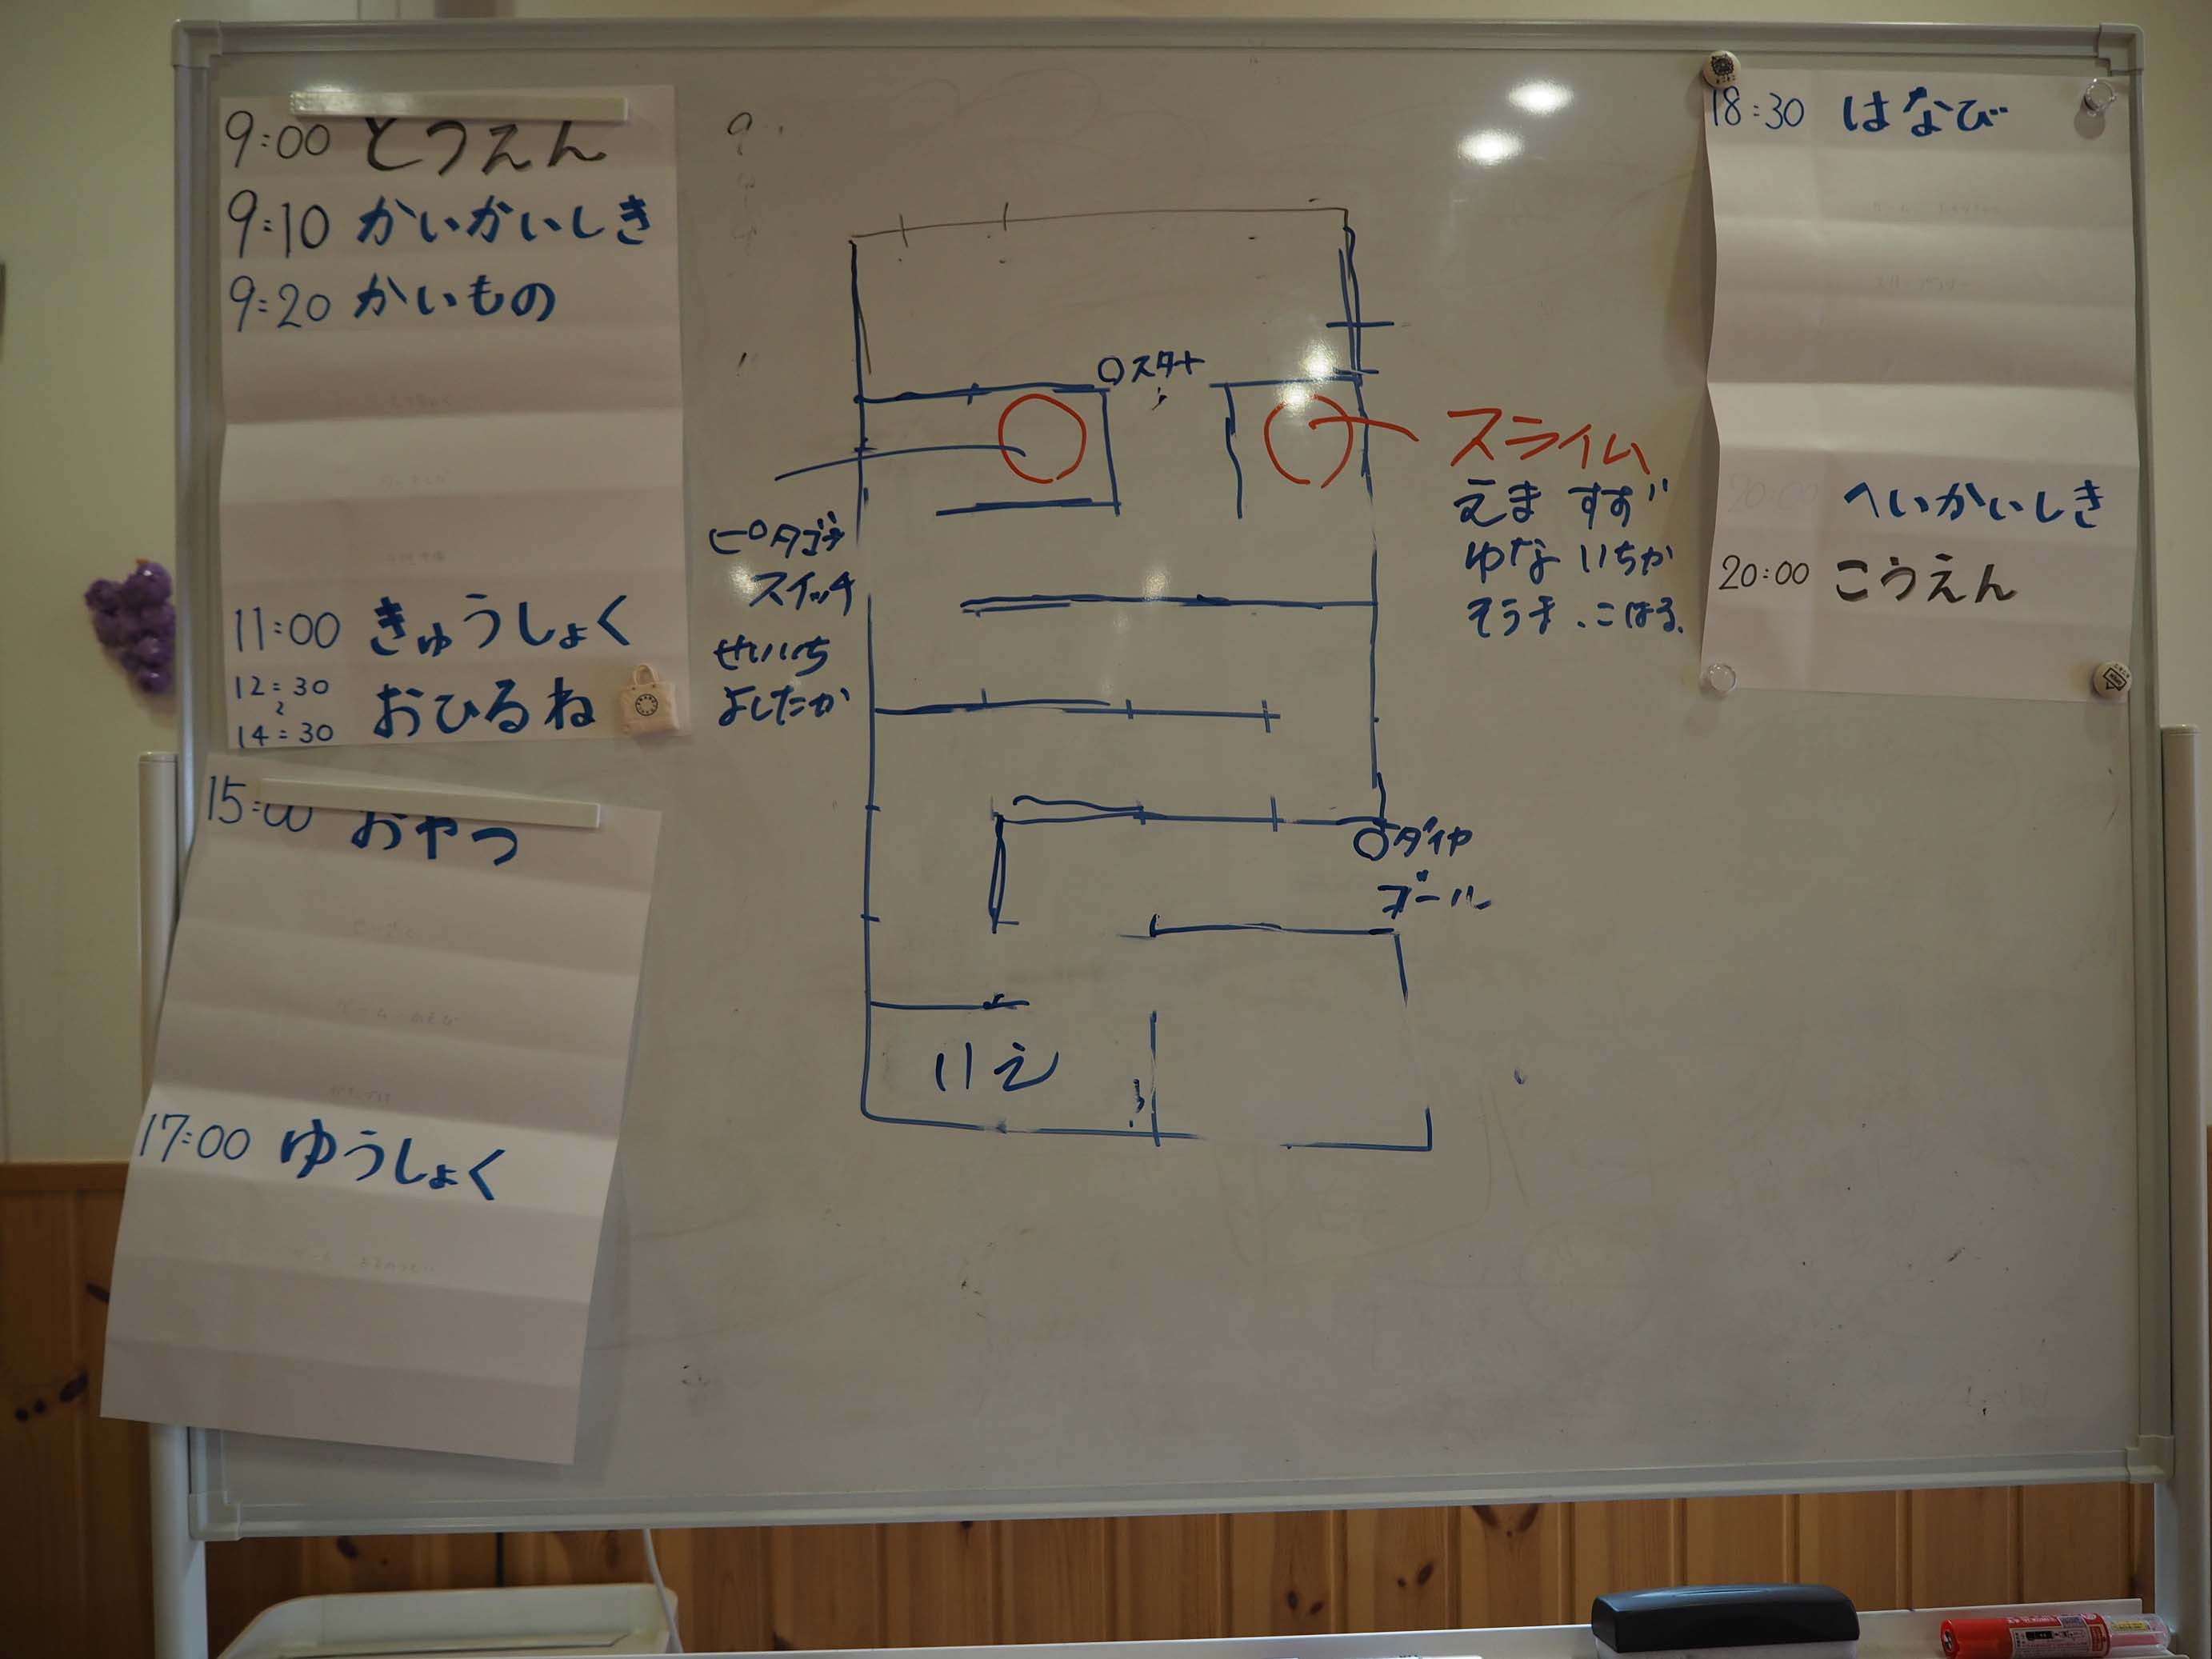 9:00 とうえん
9:10 かいかいしき
9:20 かいもの
11:00 きゅうしょく
12:30
~
14:30
おひるね
15:00 おやつ
17:00 ゆうしょく
9
スタート
ピタゴラ
スイッチ
せいいち
よしたか
スライム
えま すず
ゆな いちか
そうま、こはる
ダイヤ
ゴール
いえ
18:30 はなび
へいかいしき
20:00 こうえん